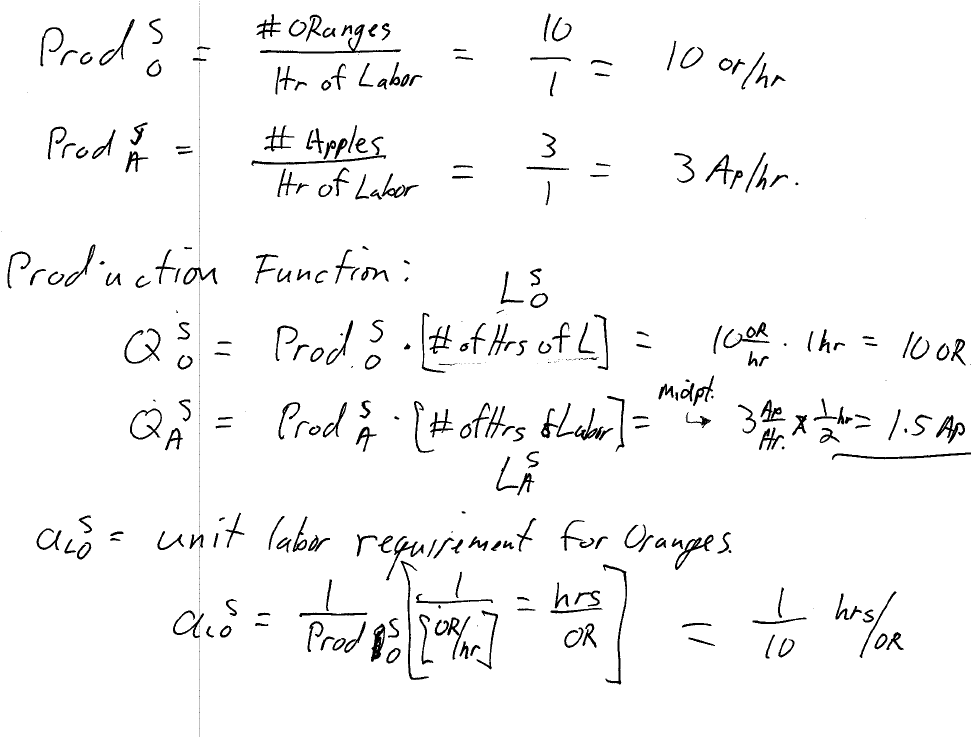 Prod S O = # ORanges / Hr of Labor = 10 / 1 = 10 or/hr
Prod S A = # Apples / Hr of Labor = 3 / 1 = 3 Ap/hr.
Production Function:
L S O
Q S O = Prod S O · [# of Hrs of L] = 10 OR/hr · 1 hr = 10 OR
midpt.
Q S A = Prod S A · [# of Hrs of Labor] = ↳ 3 Ap/Hr. x 1/2 hr = 1.5 Ap
L S A
a LO S = unit labor requirement for Oranges.
a LO S = 1 / Prod S O [1 / [OR/hr] = hrs / OR] = 1 / 10 hrs/OR